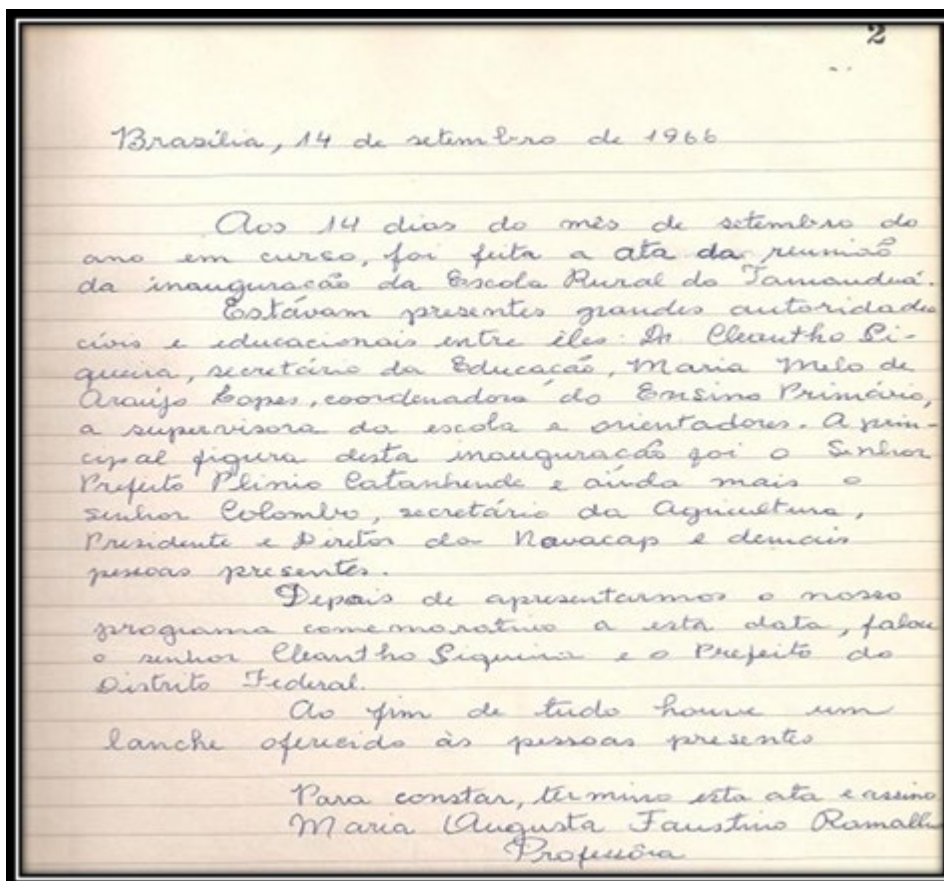 2
Brasília, 14 de setembro de 1966
Aos 14 dias do mês de setembro do
ano em curso, foi feita a ata da reunião
da inauguração da Escola Rural do Tamanduá.
Estávam presentes grandes autoridades
civis e educacionais entre êles: Dr Cleantho Si-
queira, secretário da Educação, Maria Melo de
Araújo Lopes, coordenadora do Ensino Primário,
a supervisora da escola e orientadores. A prin-
cipal figura desta inauguração foi o Senhor
Prefeito Plinio Catanhende e ainda mais o
senhor Colombo, secretário da Agricultura,
Presidente e Diretor da Novacap e demais
pessoas presentes.
Depois de apresentarmos o nosso
programa comemorativo a esta data, falou
o senhor Cleantho Siqueira e o Prefeito do
Distrito Federal.
Ao fim de tudo houve um
lanche oferecido às pessoas presentes
Para constar, termino esta ata e assino
Maria Augusta Faustino Ramalho
Professôra